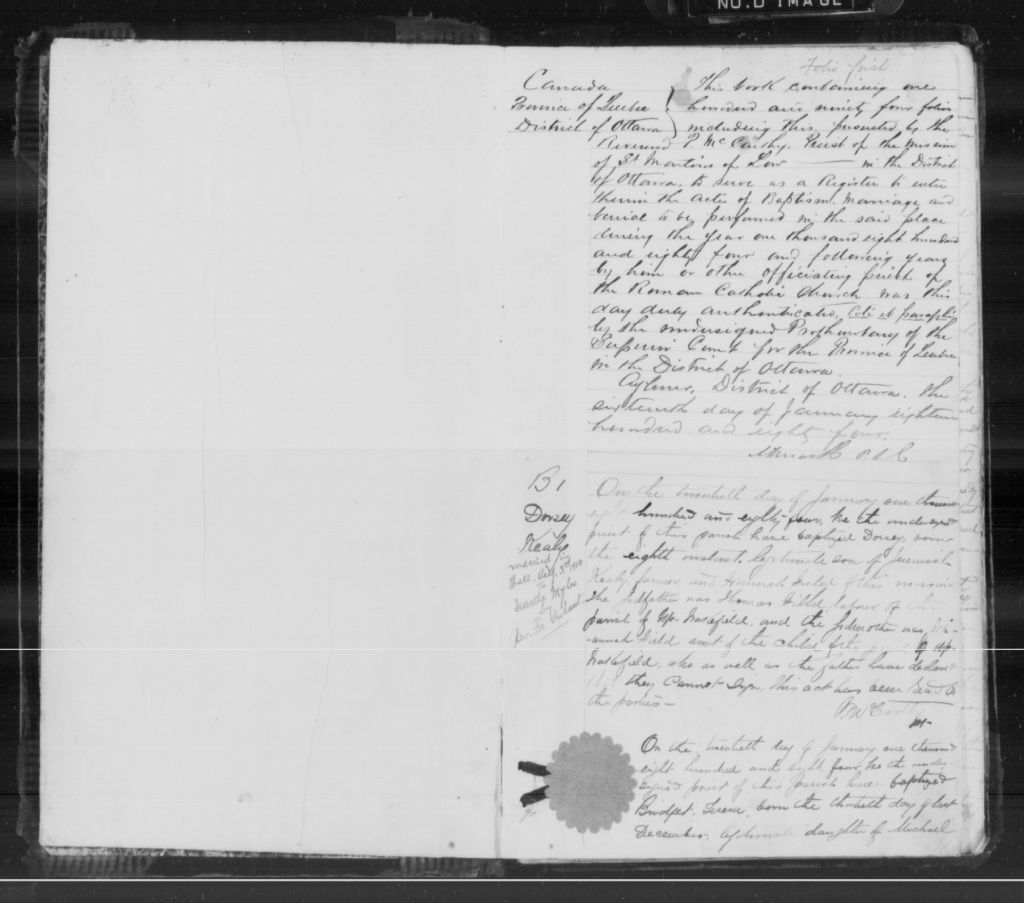 NO.D IMAGE
Folio first
Canada
Province of Quebec
District of Ottawa
This book containing one
hundred and ninety four folios
including this, presented by the
Reverend P. McCarthy, Priest of the Mission
of St Martins of Low — in the District
of Ottawa, to serve as a Register to enter
therein the Acts of Baptism, Marriage and
burial to be performed in the said place
during the year one thousand eight hundred
and eighty four and following years
by him or other officiating priest of
the Roman Catholic Church was this
day duly authenticated,
by the undersigned Prothonotary of the
Superior Court for the Province of Quebec
in the District of Ottawa.
Aylmer, District of Ottawa, the
sixteenth day of January eighteen
hundred and eighty four.
P.S.C
B1
Dorsey
Kealy
married in
Hull, Aug. 3rd 1910
to
Myles
by
On the twentieth day of January one thousand
eight hundred and eighty four, We the undersigned
priest of this parish have baptized Dorsey, born
the eighth instant, legitimate son of Jeremiah
Kealy farmer, and Hannah Field of this mission
The godfather was Thomas Field labourer of
parish of Up. Wakefield, and the godmother was,
Field aunt of the child of up.
Wakefield, who as well as the father have declared
they cannot sign this act has been read to
the parties —
P. McCarthy
pt.
On the twentieth day of January one thousand
eight hundred and eighty four, We the under-
signed priest of this Parish have baptized
Bridget, born the thirtieth day of last
December, legitimate daughter of Michael